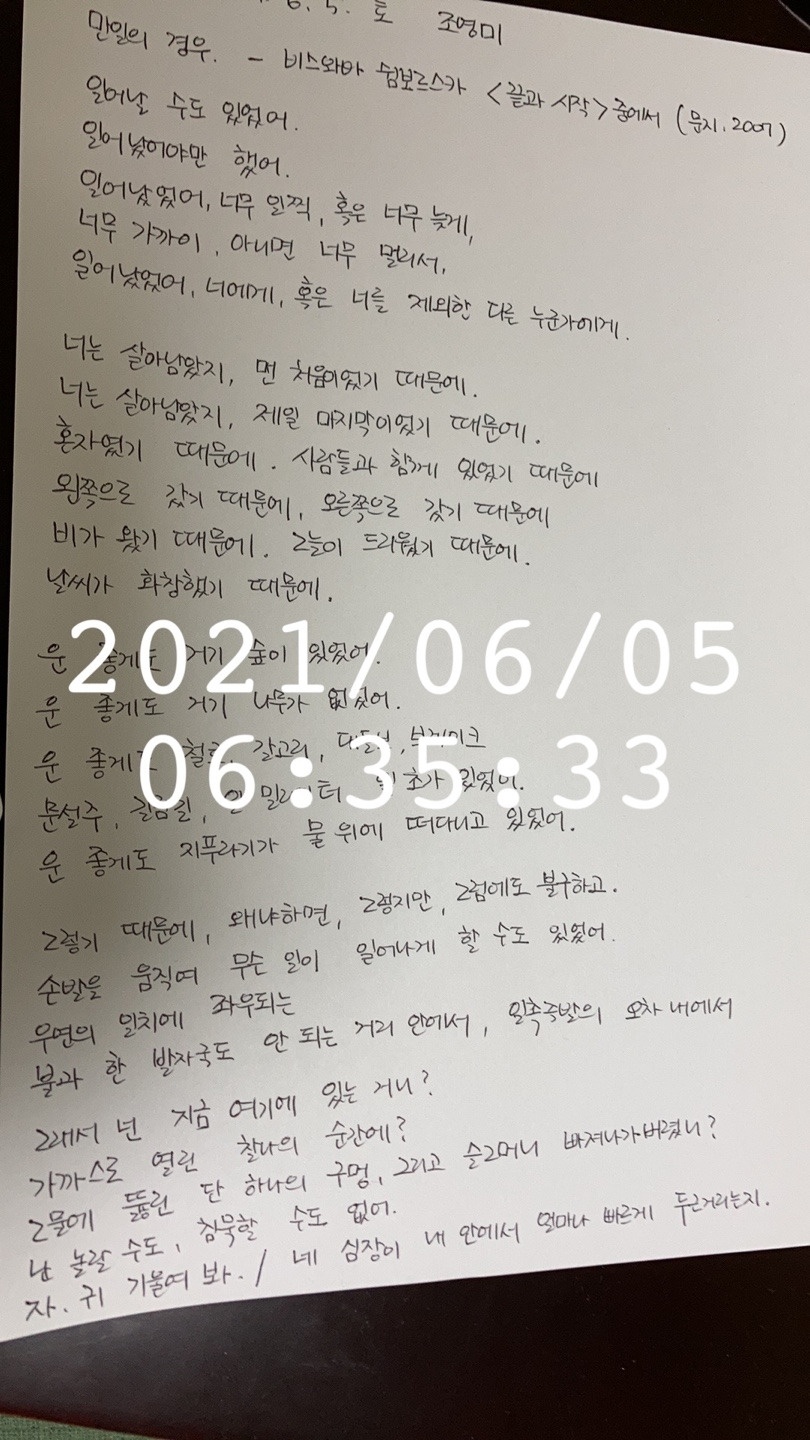 6. 5. 토 조영미
만일의 경우. - 비스와바 쉼보르스카 <끝과 시작> 중에서 (문지. 2007)
일어날 수도 있었어.
일어났어야만 했어.
일어났었어, 너무 일찍, 혹은 너무 늦게,
너무 가까이, 아니면 너무 멀리서,
일어났었어, 너에게, 혹은 너를 제외한 다른 누군가에게.
너는 살아남았지, 맨 처음이었기 때문에.
너는 살아남았지, 제일 마지막이었기 때문에.
혼자였기 때문에. 사람들과 함께 있었기 때문에
왼쪽으로 갔기 때문에, 오른쪽으로 갔기 때문에
비가 왔기 때문에. 그늘이 드리웠기 때문에.
날씨가 화창했기 때문에.
운 좋게도 거기 숲이 있었어.
2021/06/05
운 좋게도 거기 나무가 없었어.
운 좋게도 철로, 갈고리, 대들보, 브레이크
06:35:33
문설주, 갈림길, 일 밀리미터, 일 초가 있었어.
운 좋게도 지푸라기가 물 위에 떠다니고 있었어.
그렇기 때문에, 왜냐하면, 그렇지만, 그럼에도 불구하고.
손발을 움직여 무슨 일이 일어나게 할 수도 있었어.
우연의 일치에 좌우되는
불과 한 발자국도 안 되는 거리 안에서, 일촉즉발의 오차 내에서
그래서 넌 지금 여기에 있는 거니?
가까스로 열린 찰나의 순간에?
그물에 뚫린 단 하나의 구멍, 그리고 슬그머니 빠져나가버렸니?
난 놀랄 수도, 침묵할 수도 없어.
자. 귀 기울여 봐. / 네 심장이 내 안에서 얼마나 빠르게 두근거리는지.